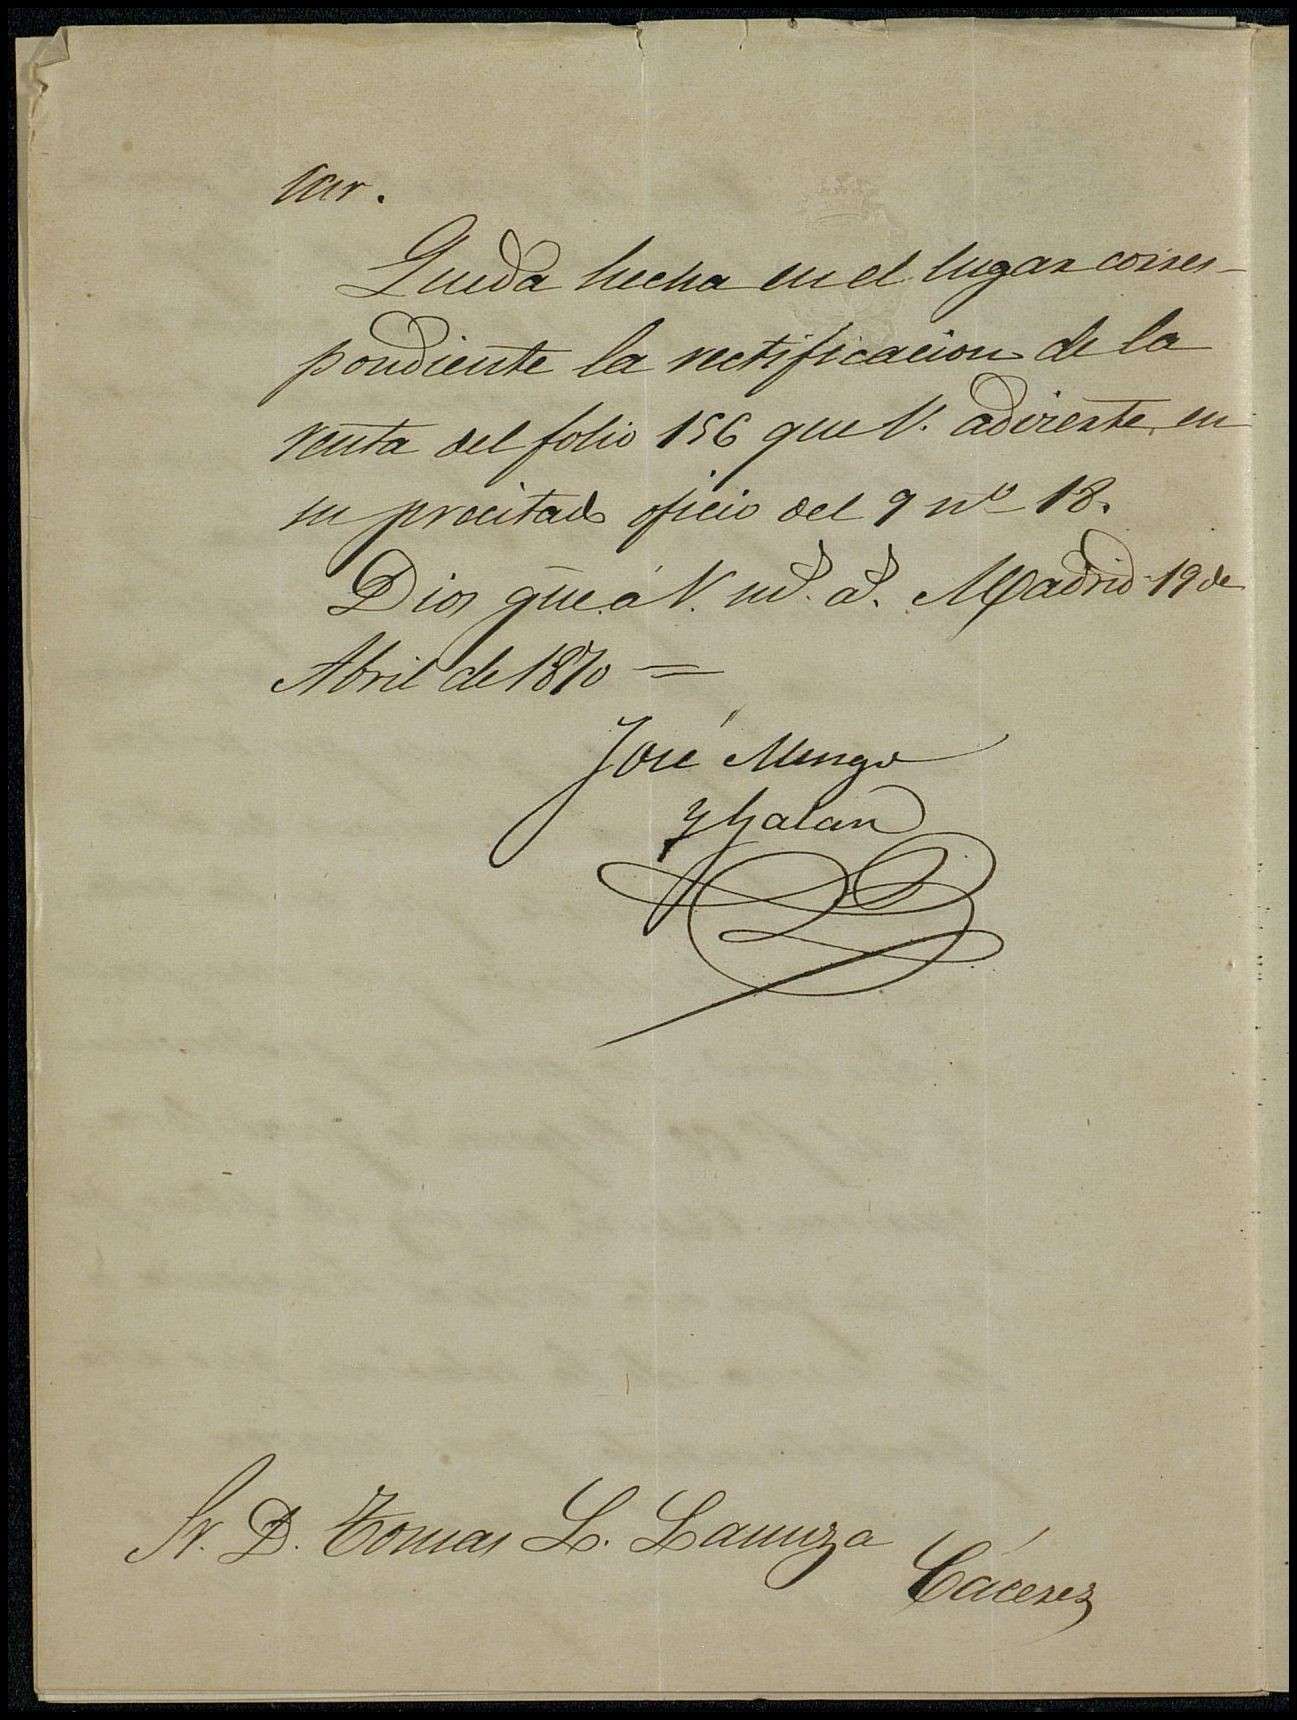 car.
Queda hecha en el lugar corres-
pondiente la rectificacion de la
venta del folio 156 que V. advierte en
su precitado oficio del 9 nº 18.
Dios gue. á V. ms. as. Madrid 19 de
Abril de 1870 =
José Mengo
y Galán
Sr. D. Tomas L. Lanuza
Cáceres